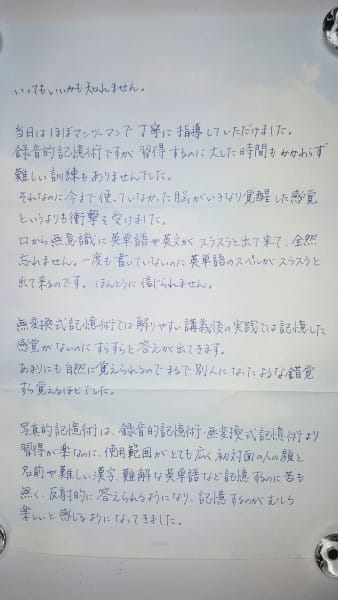 いってもいいかも知れません。
当日はほぼマンツーマンで丁寧に指導していただけました。
録音的記憶術ですが習得するのに大した時間もかからず
難しい訓練もありませんでした。
それなのに今まで使っていなかった脳がいきなり覚醒した感覚
というよりも衝撃を受けました。
口から無意識に英単語や英文がスラスラと出て来て、全然
忘れません。一度も書いていないのに英単語のスペルがスラスラと
出て来るのです。ほんとうに信じられません。
無変換式記憶術では解りやすい講義後の実践では記憶した
感覚がないのにすらすらと答えが出てきます。
あまりにも自然に覚えられるのでまるで別人になったような錯覚
すら覚えるほどでした。
写真的記憶術は、録音的記憶術・無変換式記憶術より
習得が楽なのに、使用範囲がとても広く初対面の人の顔と
名前や難しい漢字、難解な英単語など記憶するのに苦も
無く、反射的に答えられるようになり、記憶するのがむしろ
楽しいと感じるようになってきました。